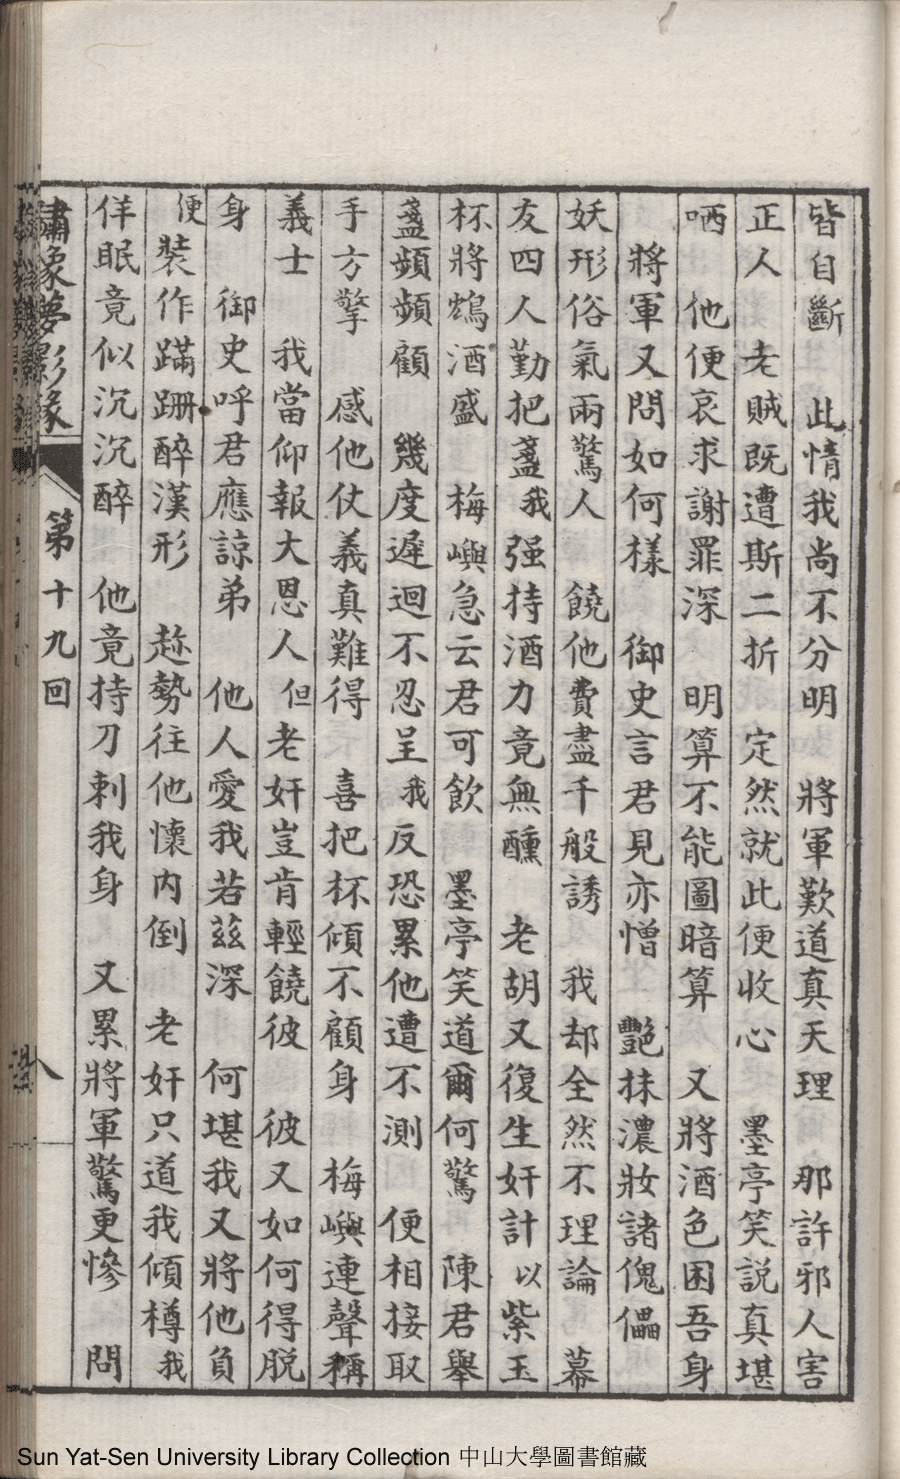 皆自斷　此情我尚不分明　將軍歎道真天理　那許邪人害
正人　老賊既遭斯二折　定然就此便收心　墨亭笑說真堪
哂　他便哀求謝罪深　明算不能圖暗算　又將酒色困吾身
將軍又問如何樣　御史言君見亦憎　艷抹濃妝諸傀儡
妖形俗氣兩驚人　饒他費盡千般誘　我却全然不理論　幕
友四人勤把盞　我强持酒力竟無醺　老胡又復生奸計　以紫玉
杯將鴆酒盛　梅嶼急云君可飲　墨亭笑道爾何驚　陳君舉
盞頻頻顧　幾度遲迴不忍呈　我反恐累他遭不測　便相接取
手方擎　感他仗義真難得　喜把杯傾不顧身　梅嶼連聲稱
義士　我當仰報大恩人　但老奸豈肯輕饒彼　彼又如何得脫
身　御史呼君應諒弟　他人愛我若茲深　何堪我又將他負
便裝作蹣跚醉漢形　趂勢往他懷内倒　老奸只道我傾樽　我
佯眠竟似沉沉醉　他竟持刀刺我身　又累將軍驚更慘　問
夢影緣
第十九回
八
Sun Yat-Sen University Library Collection 中山大學圖書館藏